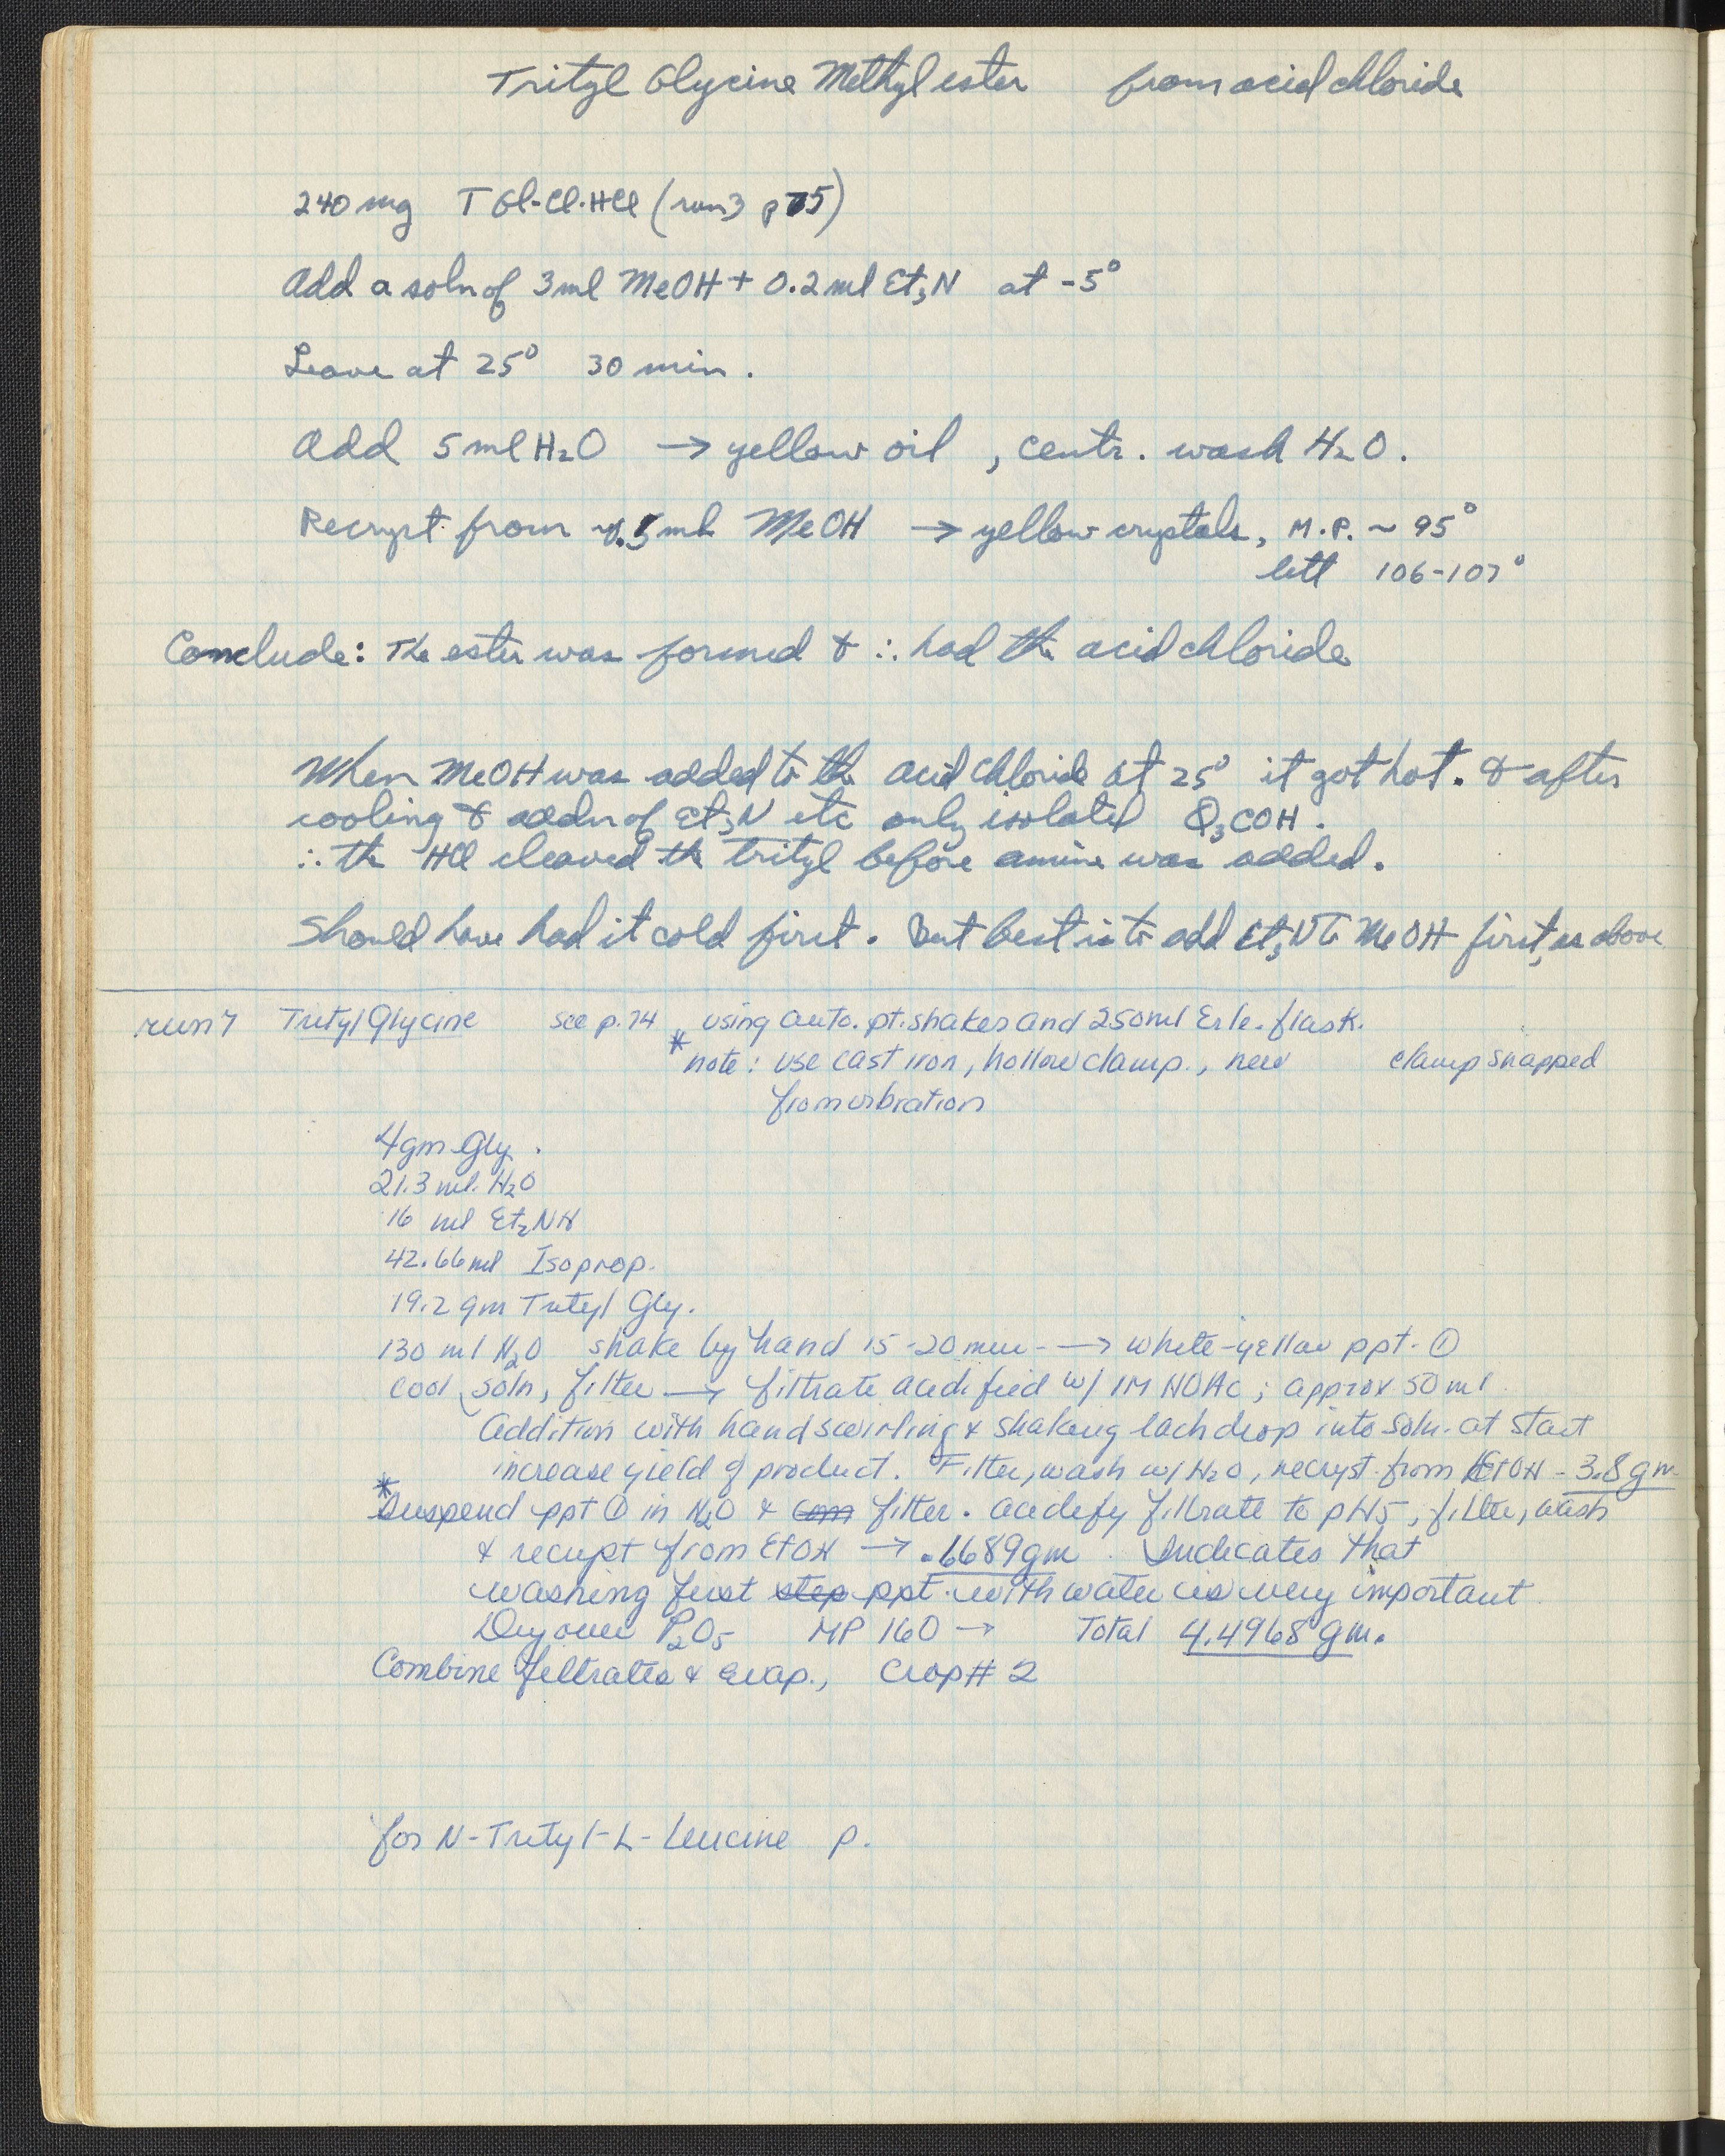 Trityl Glycine Methyl ester from acid chloride
240 mg T Gl-Cl·HCl (run 3 p 75)
Add a soln of 3 ml MeOH + 0.2 ml Et₃N at -5°
Leave at 25° 30 min.
Add 5 ml H₂O → yellow oil, centr. wash H₂O.
Recryst. from ml MeOH → yellow crystals, M.P. ~ 95°
litt 106-107°
Conclude: The ester was formed & ∴ had the acid chloride
When MeOH was added to the acid chloride at 25° it got hot. & after
cooling & addn of Et₃N etc only isolated Φ₃COH.
∴ the HCl cleaved the trityl before amine was added.
Should have had it cold first. But best is to add Et₃N to MeOH first, as above
run 7 Trityl Glycine see p. 74 using auto. pt. shaker and 250 ml Erle. flask.
* note: use cast iron, hollow clamp., new clamp snapped
from vibration
4 gm Gly.
21.3 ml. H₂O
16 ml Et₂NH
42.66 ml Isoprop.
19.2 gm Trityl Gly.
130 ml H₂O shake by hand 15-20 min - → white-yellow ppt. ①
cool soln, filter → filtrate acidified w/ 1M HOAc; approx 50 ml.
Addition with hand swirling & shaking each drop into soln. at start
increase yield of product. Filter, wash w/ H₂O, recryst. from EtOH - 3.8 gm
* Suspend ppt ① in H₂O & com filter. acidify filtrate to pH 5, filter, wash
& recryst from EtOH → .6689 gm. Indicates that
washing first step ppt. with water is very important.
Dry over P₂O₅ MP 160 → Total 4.4968 gm.
Combine filtrates & Evap., Crop # 2
for N-Trityl-L-Leucine p.